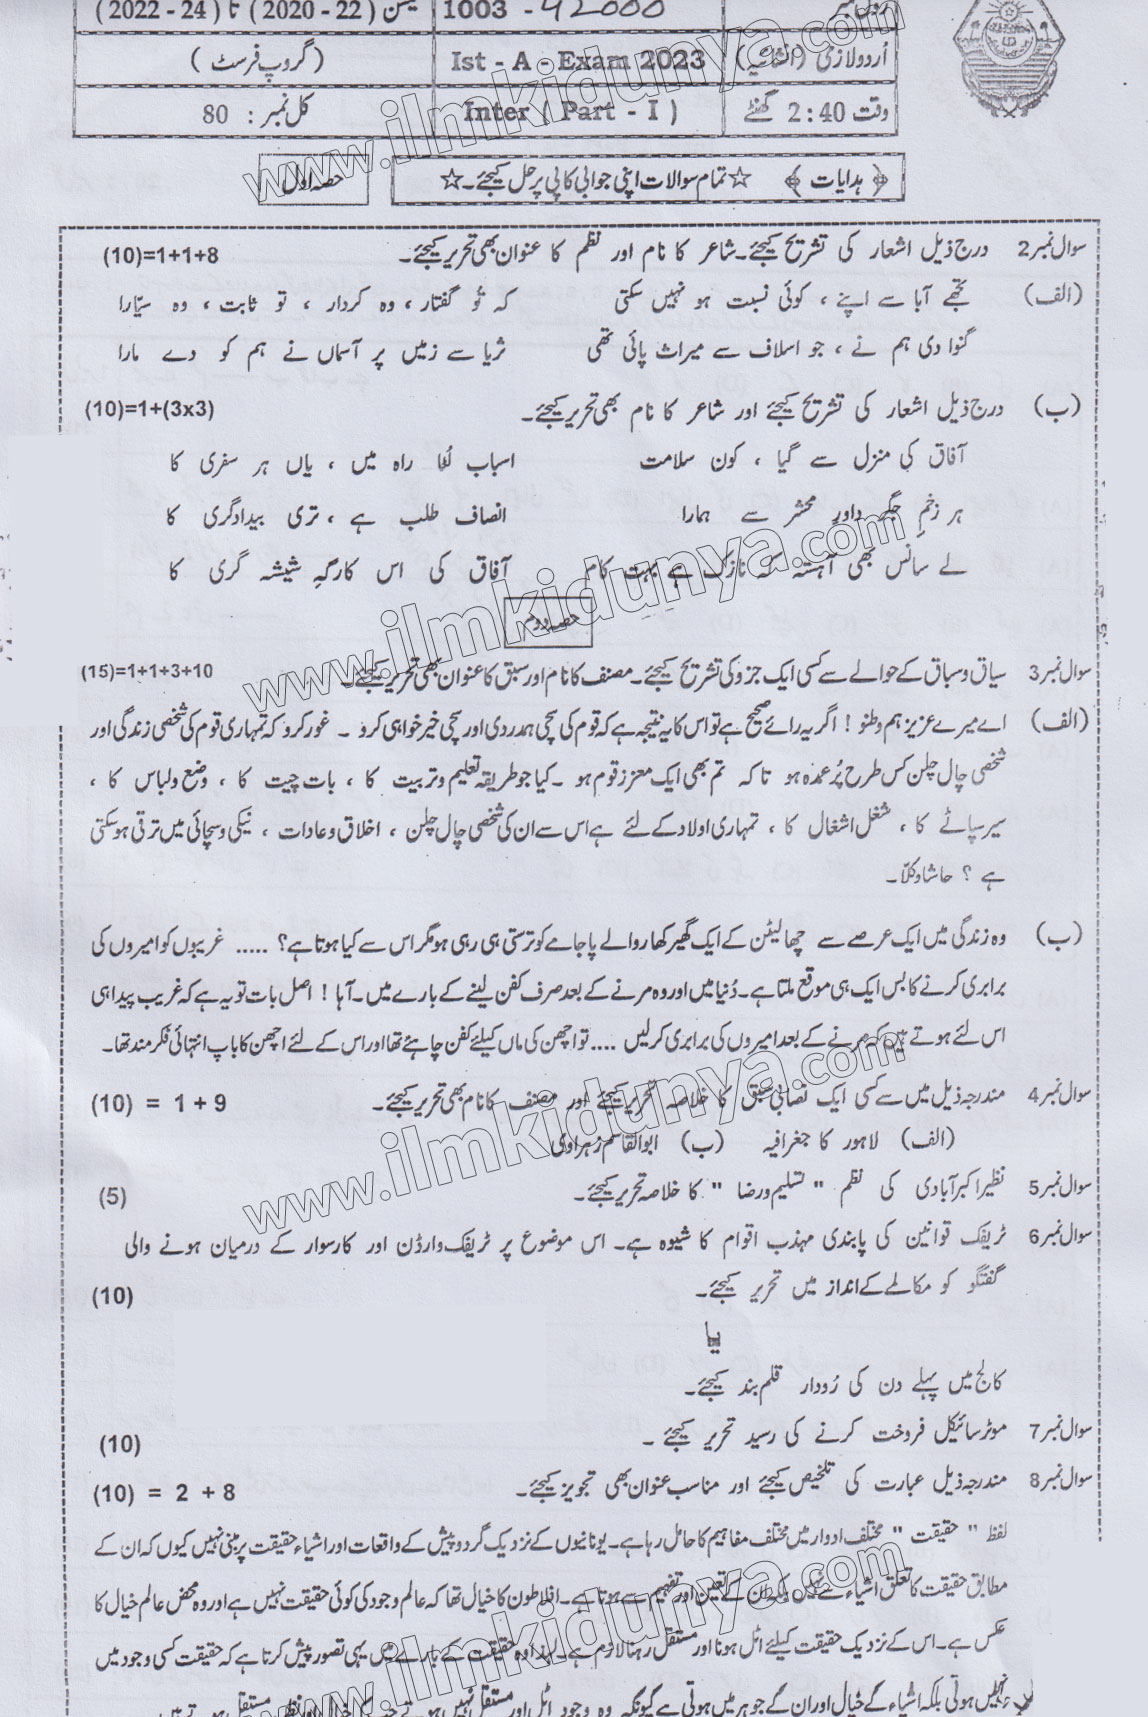 1003 - 42000
سیشن (22 - 2020) تا (24 - 2022)
اُردو لازمی (انشائیہ)
Ist - A - Exam 2023
(گروپ فرسٹ)
وقت 2:40 گھنٹے
Inter ( Part - I )
کل نمبر : 80
﴿ ہدایات ﴾ ☆ تمام سوالات اپنی جوابی کاپی پر حل کیجئے۔ ☆
حصہ اول
سوال نمبر 2 درج ذیل اشعار کی تشریح کیجئے۔ شاعر کا نام اور نظم کا عنوان بھی تحریر کیجئے۔ (10)=1+1+8
(الف) تجھے آبا سے اپنے ، کوئی نسبت ہو نہیں سکتی کہ تُو گفتار ، وہ کردار ، تو ثابت ، وہ سیّارا
گنوا دی ہم نے ، جو اسلاف سے میراث پائی تھی ثریا سے زمیں پر آسماں نے ہم کو دے مارا
(ب) درج ذیل اشعار کی تشریح کیجئے اور شاعر کا نام بھی تحریر کیجئے۔ (10)=1+(3x3)
آفاق کی منزل سے گیا ، کون سلامت اسباب لُٹا راہ میں ، یاں ہر سفری کا
ہر زخمِ جگر داورِ محشر سے ہمارا انصاف طلب ہے ، تری بیدادگری کا
لے سانس بھی آہستہ کہ نازک ہے بہت کام آفاق کی اس کارگہِ شیشہ گری کا
حصہ دوم
سوال نمبر 3 سیاق و سباق کے حوالے سے کسی ایک جزو کی تشریح کیجئے۔ مصنف کا نام اور سبق کا عنوان بھی تحریر کیجئے۔ (15)=1+1+3+10
(الف) اے میرے عزیز ہم وطنو ! اگر یہ رائے صحیح ہے تو اس کا یہ نتیجہ ہے کہ قوم کی سچی ہمدردی اور سچی خیر خواہی کرو ۔ غور کرو کہ تمہاری قوم کی شخصی زندگی اور
شخصی چال چلن کس طرح پر عمدہ ہو تا کہ تم بھی ایک معزز قوم ہو ۔ کیا جو طریقہ تعلیم و تربیت کا ، بات چیت کا ، وضع و لباس کا ،
سیر سپاٹے کا ، شغل اشغال کا ، تمہاری اولاد کے لئے ہے اس سے ان کی شخصی چال چلن ، اخلاق و عادات ، نیکی و سچائی میں ترقی ہو سکتی
ہے ؟ حاشا وکلّا۔
(ب) وہ زندگی میں ایک عرصے سے چھالیٹن کے ایک گھیر کھار والے پاجامے کو ترستی ہی رہی ہو مگر اس سے کیا ہوتا ہے؟ ..... غریبوں کو امیروں کی
برابری کرنے کا بس ایک ہی موقع ملتا ہے۔ دُنیا میں اور وہ مرنے کے بعد صرف کفن لینے کے بارے میں۔ آہا ! اصل بات تو یہ ہے کہ غریب پیدا ہی
اس لئے ہوتے ہیں کہ مرنے کے بعد امیروں کی برابری کر لیں .... تو اچھن کی ماں کیلئے کفن چاہئے تھا اور اس کے لئے اچھن کا باپ انتہائی فکر مند تھا۔
سوال نمبر 4 مندرجہ ذیل میں سے کسی ایک نصابی سبق کا خلاصہ تحریر کیجئے اور مصنف کا نام بھی تحریر کیجئے۔ (10) = 1 + 9
(الف) لاہور کا جغرافیہ (ب) ابوالقاسم زہراوی
سوال نمبر 5 نظیر اکبر آبادی کی نظم " تسلیم و رضا " کا خلاصہ تحریر کیجئے۔ (5)
سوال نمبر 6 ٹریفک قوانین کی پابندی مہذب اقوام کا شیوہ ہے۔ اس موضوع پر ٹریفک وارڈن اور کار سوار کے درمیان ہونے والی
گفتگو کو مکالمے کے انداز میں تحریر کیجئے۔ (10)
یا
کالج میں پہلے دن کی رُوداد قلم بند کیجئے۔
سوال نمبر 7 موٹر سائیکل فروخت کرنے کی رسید تحریر کیجئے ۔ (10)
سوال نمبر 8 مندرجہ ذیل عبارت کی تلخیص کیجئے اور مناسب عنوان بھی تجویز کیجئے۔ (10) = 2 + 8
لفظ " حقیقت " مختلف ادوار میں مختلف مفاہیم کا حامل رہا ہے۔ یونانیوں کے نزدیک گردوپیش کے واقعات اور اشیاء حقیقت پر مبنی نہیں کیوں کہ ان کے
مطابق حقیقت کا تعلق اشیاء سے نہیں بلکہ ان کے تعین اور تفہیم سے ہوتا ہے۔ افلاطون کا خیال تھا کہ عالم وجود کی کوئی حقیقت نہیں ہے اور وہ محض عالم خیال کا
عکس ہے۔ اس کے نزدیک حقیقت کیلئے اٹل ہونا اور مستقل رہنا لازم ہے۔ لہٰذا وہ حقیقت کے بارے میں یہی تصور پیش کرتا ہے کہ حقیقت کسی وجود میں
نہیں ہوتی بلکہ اشیاء کے خیال اور ان کے جوہر میں ہوتی ہے کیونکہ وہ وجود اٹل اور مستقل نہیں ہوتے
www.ilmkidunya.com
www.ilmkidunya.com
www.ilmkidunya.com
www.ilmkidunya.com